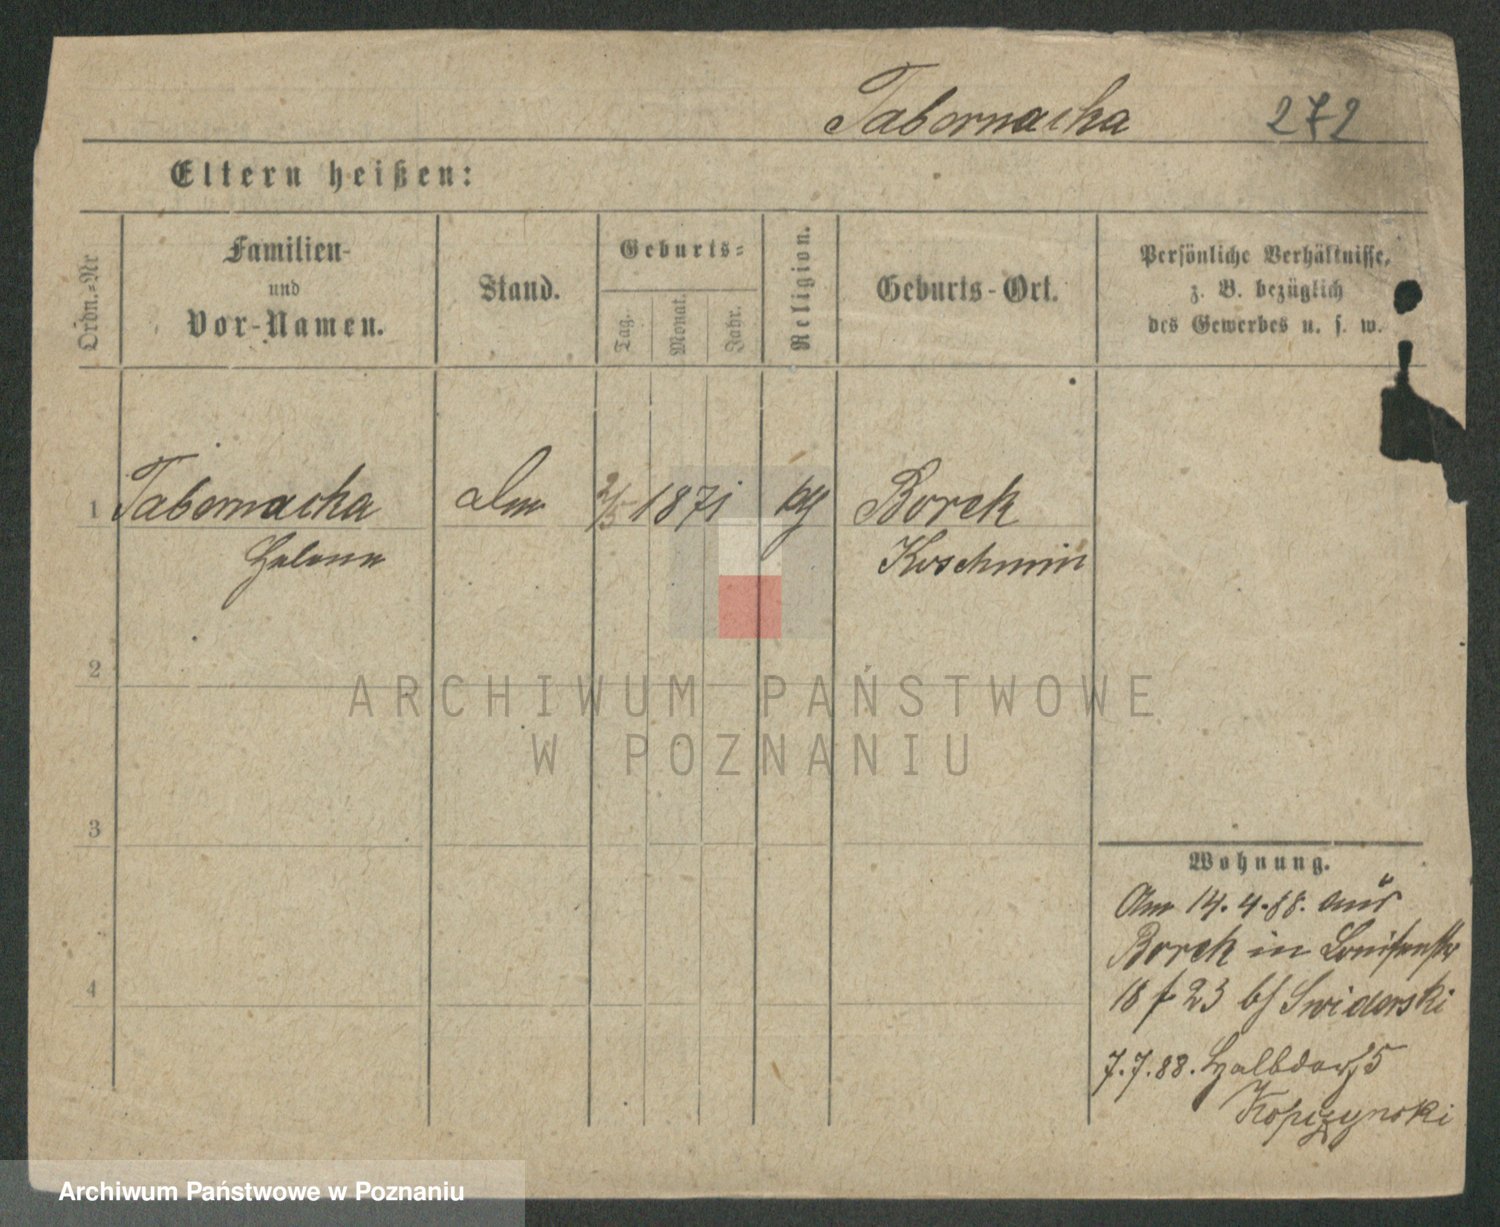 Tabernacka 272
Eltern heißen:
Ordn.-Nr
Familien-
und
Vor-Namen.
Stand.
Geburts-
Tag.
Monat.
Jahr.
Religion.
Geburts-Ort.
Persönliche Verhältnisse,
z. B. bezüglich
des Gewerbes u. s. w.
1 Tabernacka 2/5 1871 Borek
Helene Koschmin
2
3
4
Wohnung.
Am 14.4.88. aus
Borek in Louisenstr
18 f 23 bf Swiderski
7.7.88. Halbdorf 5
Kopczynski
ARCHIWUM PAŃSTWOWE
W POZNANIU
Archiwum Państwowe w Poznaniu